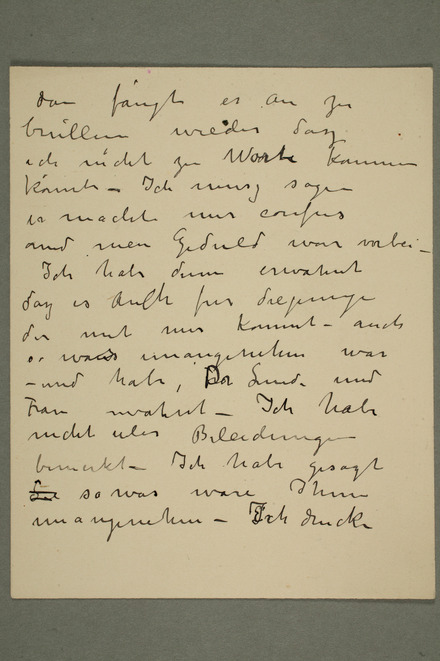 dan fängt es an zu
brüllen wieder dasz
ich nicht zu Worte kommen
könnte – Ich musz sagen
es machte mir confus
und mein Geduld war vorbei –
Ich habe denn erwähnt
dasz es auch für diejenige
der mit mir kommt – auch
so was unangenehm war
– und habe, Dr Lunde und
Frau erwähnt – Ich habe
nicht Beleidungen
bemerkt – Ich habe gesagt
so was wäre Ihnen
unangenehm – Ich drucke